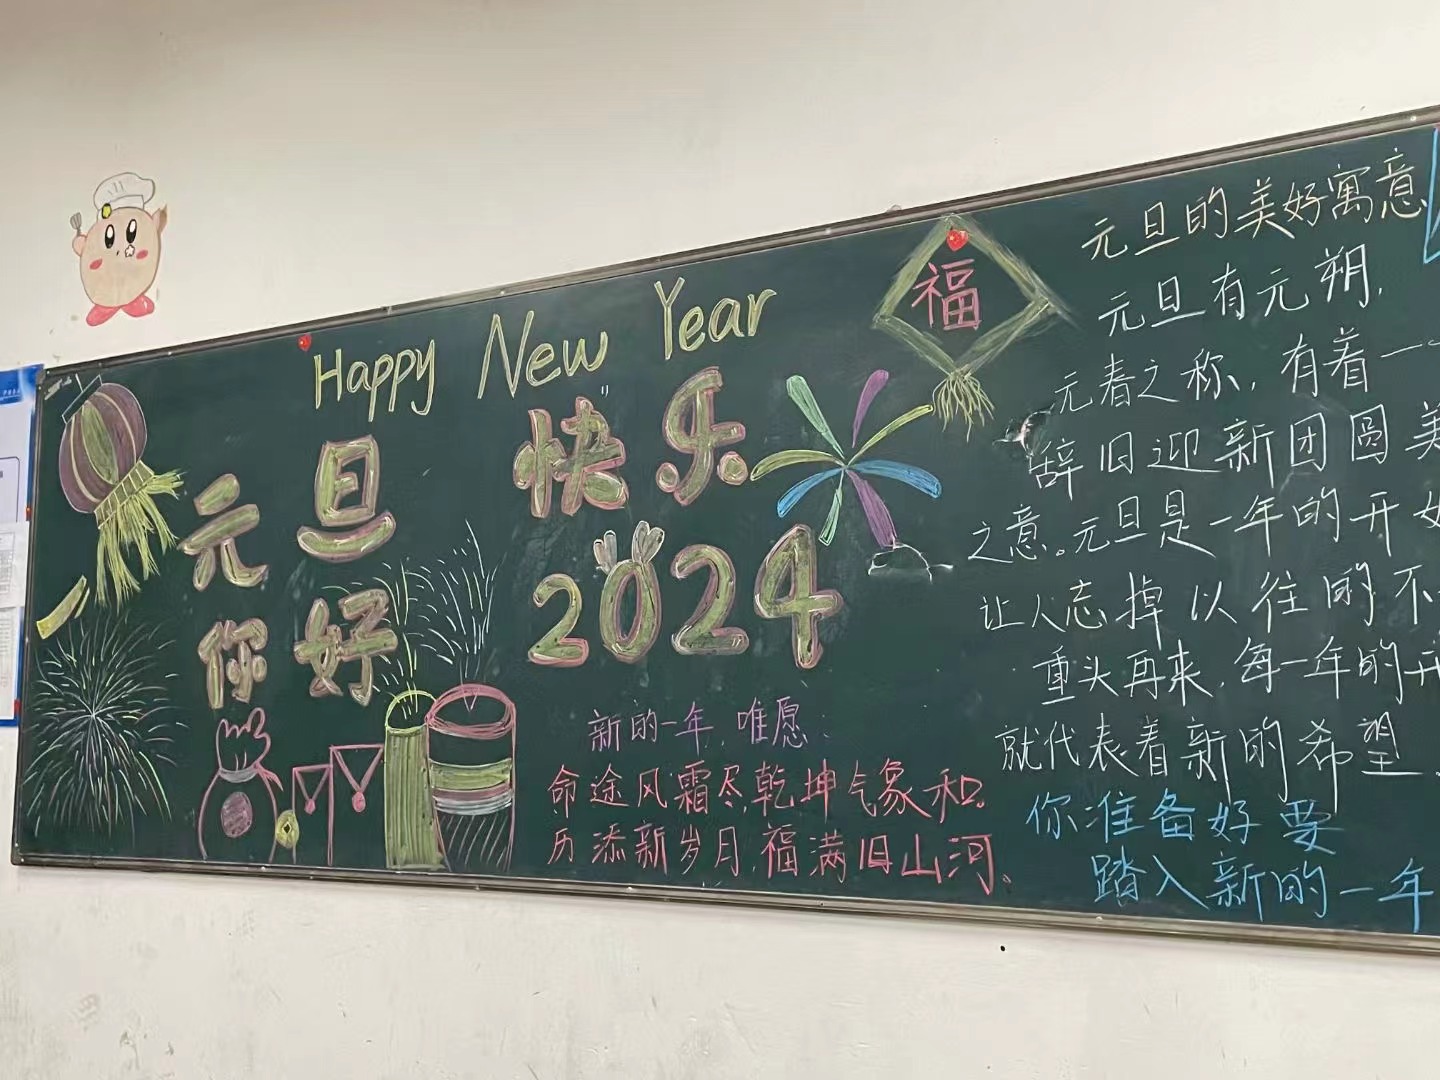 Happy New Year
元旦快乐
你好2024
福
新的一年,唯愿:
命途风霜尽,乾坤气象和。
历添新岁月,福满旧山河。
元旦的美好寓意
元旦有元朔,
元春之称,有着一
辞旧迎新团圆美
之意。元旦是一年的开始
让人忘掉以往的不
重头再来,每一年的开
就代表着新的希望
你准备好要
踏入新的一年